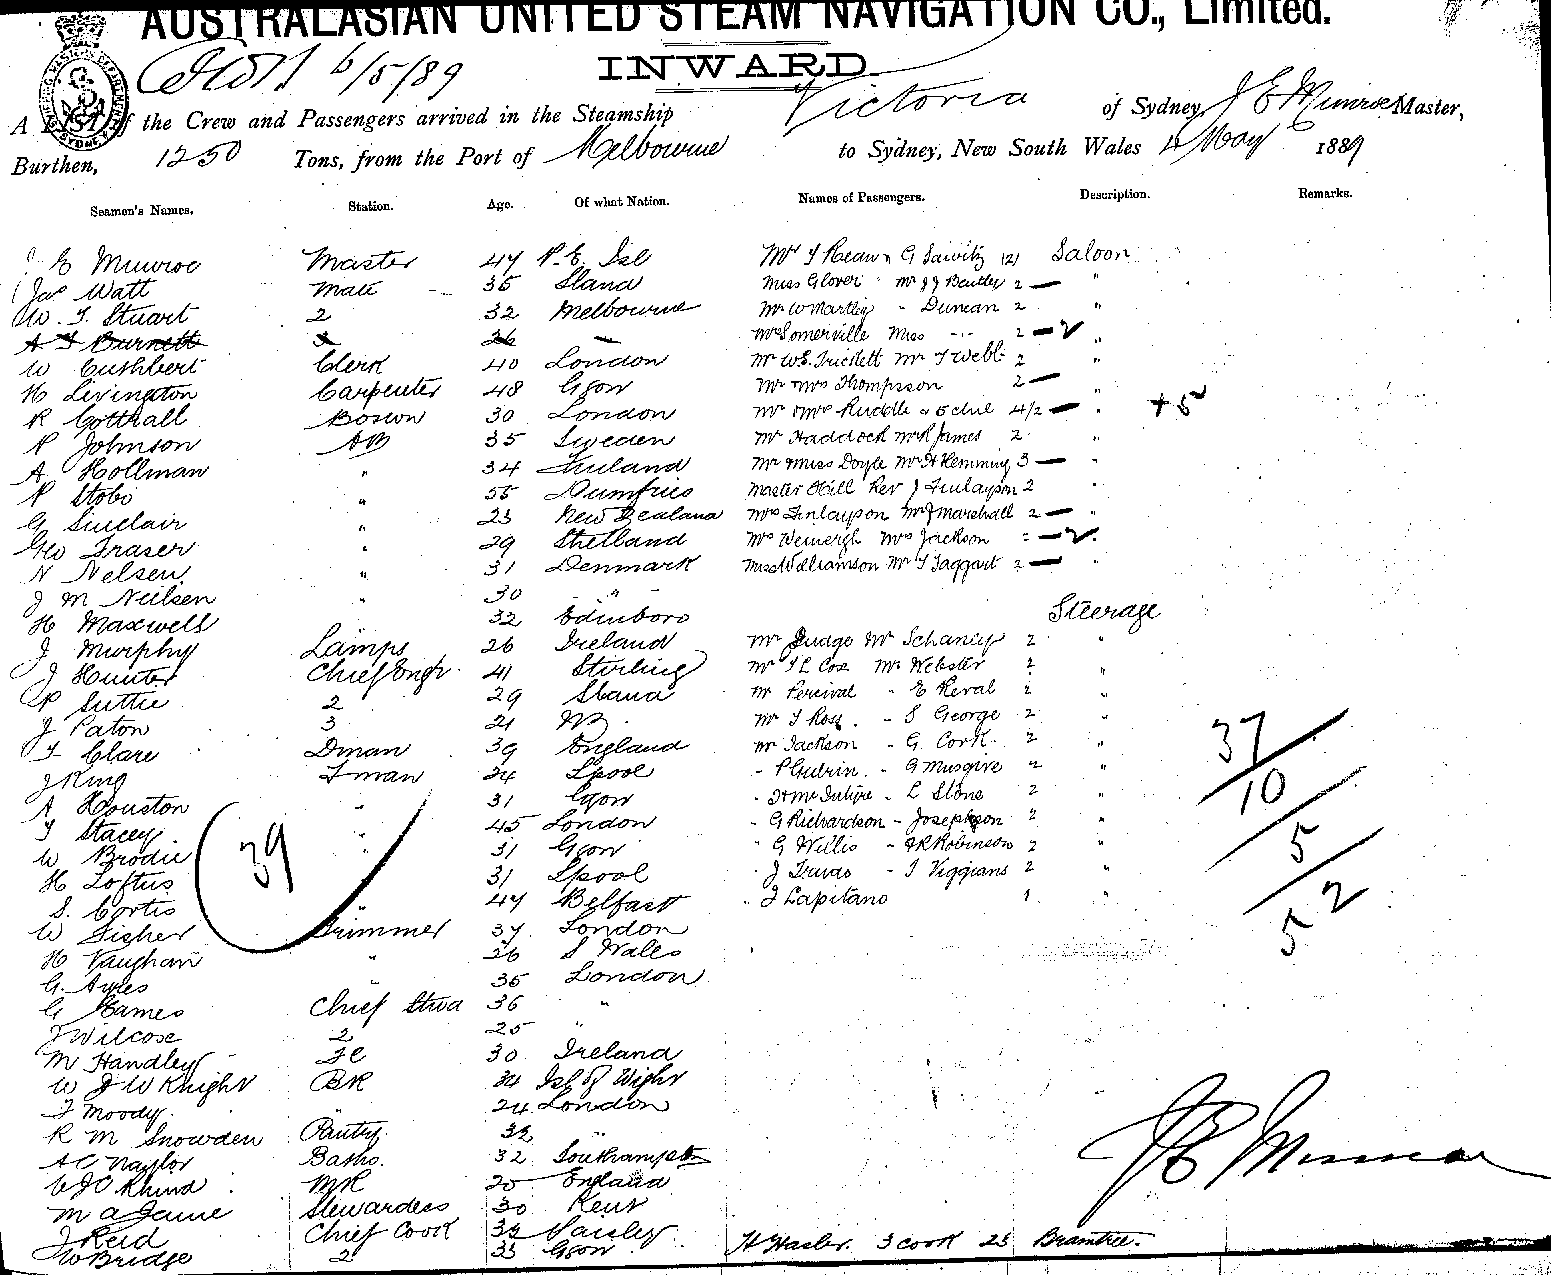 AUSTRALASIAN UNITED STEAM NAVIGATION CO., Limited.
6/5/89
INWARD
A LIST of the Crew and Passengers arrived in the Steamship Victoria of Sydney, J E Munroe Master,
Burthen, 1250 Tons, from the Port of Melbourne to Sydney, New South Wales 4 May 1889
Seamen's Names. Station. Age. Of what Nation. Names of Passengers. Description. Remarks.
J E Munroe Master 47 P. E. Isl Saloon
Jas Watt Mate 35 Sland Miss Glover Mr J J Bentley 2 — "
W. T. Stuart 2 32 Melbourne Mr W Martley - Duncan 2 "
A T Burnett 3 26 — Mrs Somerville Miss -- 2 — "
W Cuthbert Clerk 40 London Mr W E Trickett Mr T Webb 2 "
H Livington Carpenter 48 Ggow Mr Mrs Thompson 2 — "
R Gotthall Bosun 30 London Mr Mrs Ruddle & 5 chil 4/2 — " + 5
P Johnson AB 35 Sweden Mr Haddock Mr R James 2 "
A Hollman " 34 Finland Mr Miss Doyle Mr H Hemming 3 — "
P Stobo " 55 Dumfries Master Hill Rev J Finlayson 2 "
G Sinclair " 23 New Zealand Mrs Finlayson Mr J Marshall 2 — "
Geo Fraser " 29 Shetland Mrs Jackson — "
N Nelsen " 31 Denmark Miss Williamson Mr T Taggart 2 — "
J M Neilsen " 30 "
H Maxwell 32 Edinboro Steerage
J Murphy Lamps 26 Ireland Mr Judge Mr Schaney 2 "
J Hunter Chief Engr. 41 Stirling Mr T L Cox Mr Webster 2 "
P Suttie 2 29 Sland Mr Percival - E Reval 2 "
J Paton 3 21 NB. Mr T Ross. - S George 2 "
T Clare Dman 39 England Mr Jackson - G Cork 2 " 37
J King Fman 24 Lpool - P Gudrin. - G Musgive 2 "
A Houston " 31 Ggow - L Stone 2 " 10
T Stacey " 45 London - G Richardson - Josephson 2 " 5
W Brodie " 31 Ggow " G Willis - J R Robinson 2 "
H Loftus 39 " 31 Lpool - T Viggians 2 " 2
S. Cortis " 47 Belfast . J Lapitano 1 "
W Fisher Trimmer 37 London 5
H Vaughan " 26 S Wales
G. Ayles 35 London
G Hames Chief Stwd 36 "
J Wilcose 2 25 "
M Handley FC 30 Ireland
W J W Knight BR 34 Isl of Wight
F Moody. " 24 London
R M Snowden Pantry. 32 "
A C Naylor Baths. 32 Southampton
C J O Rhind MR 20 England
M A Jaine Stewardess 30 Kent
J Reid Chief Cook 32 Paisley
W Bridge 2 33 Ggow H Hasler. 3 Cook 23 Braintree.